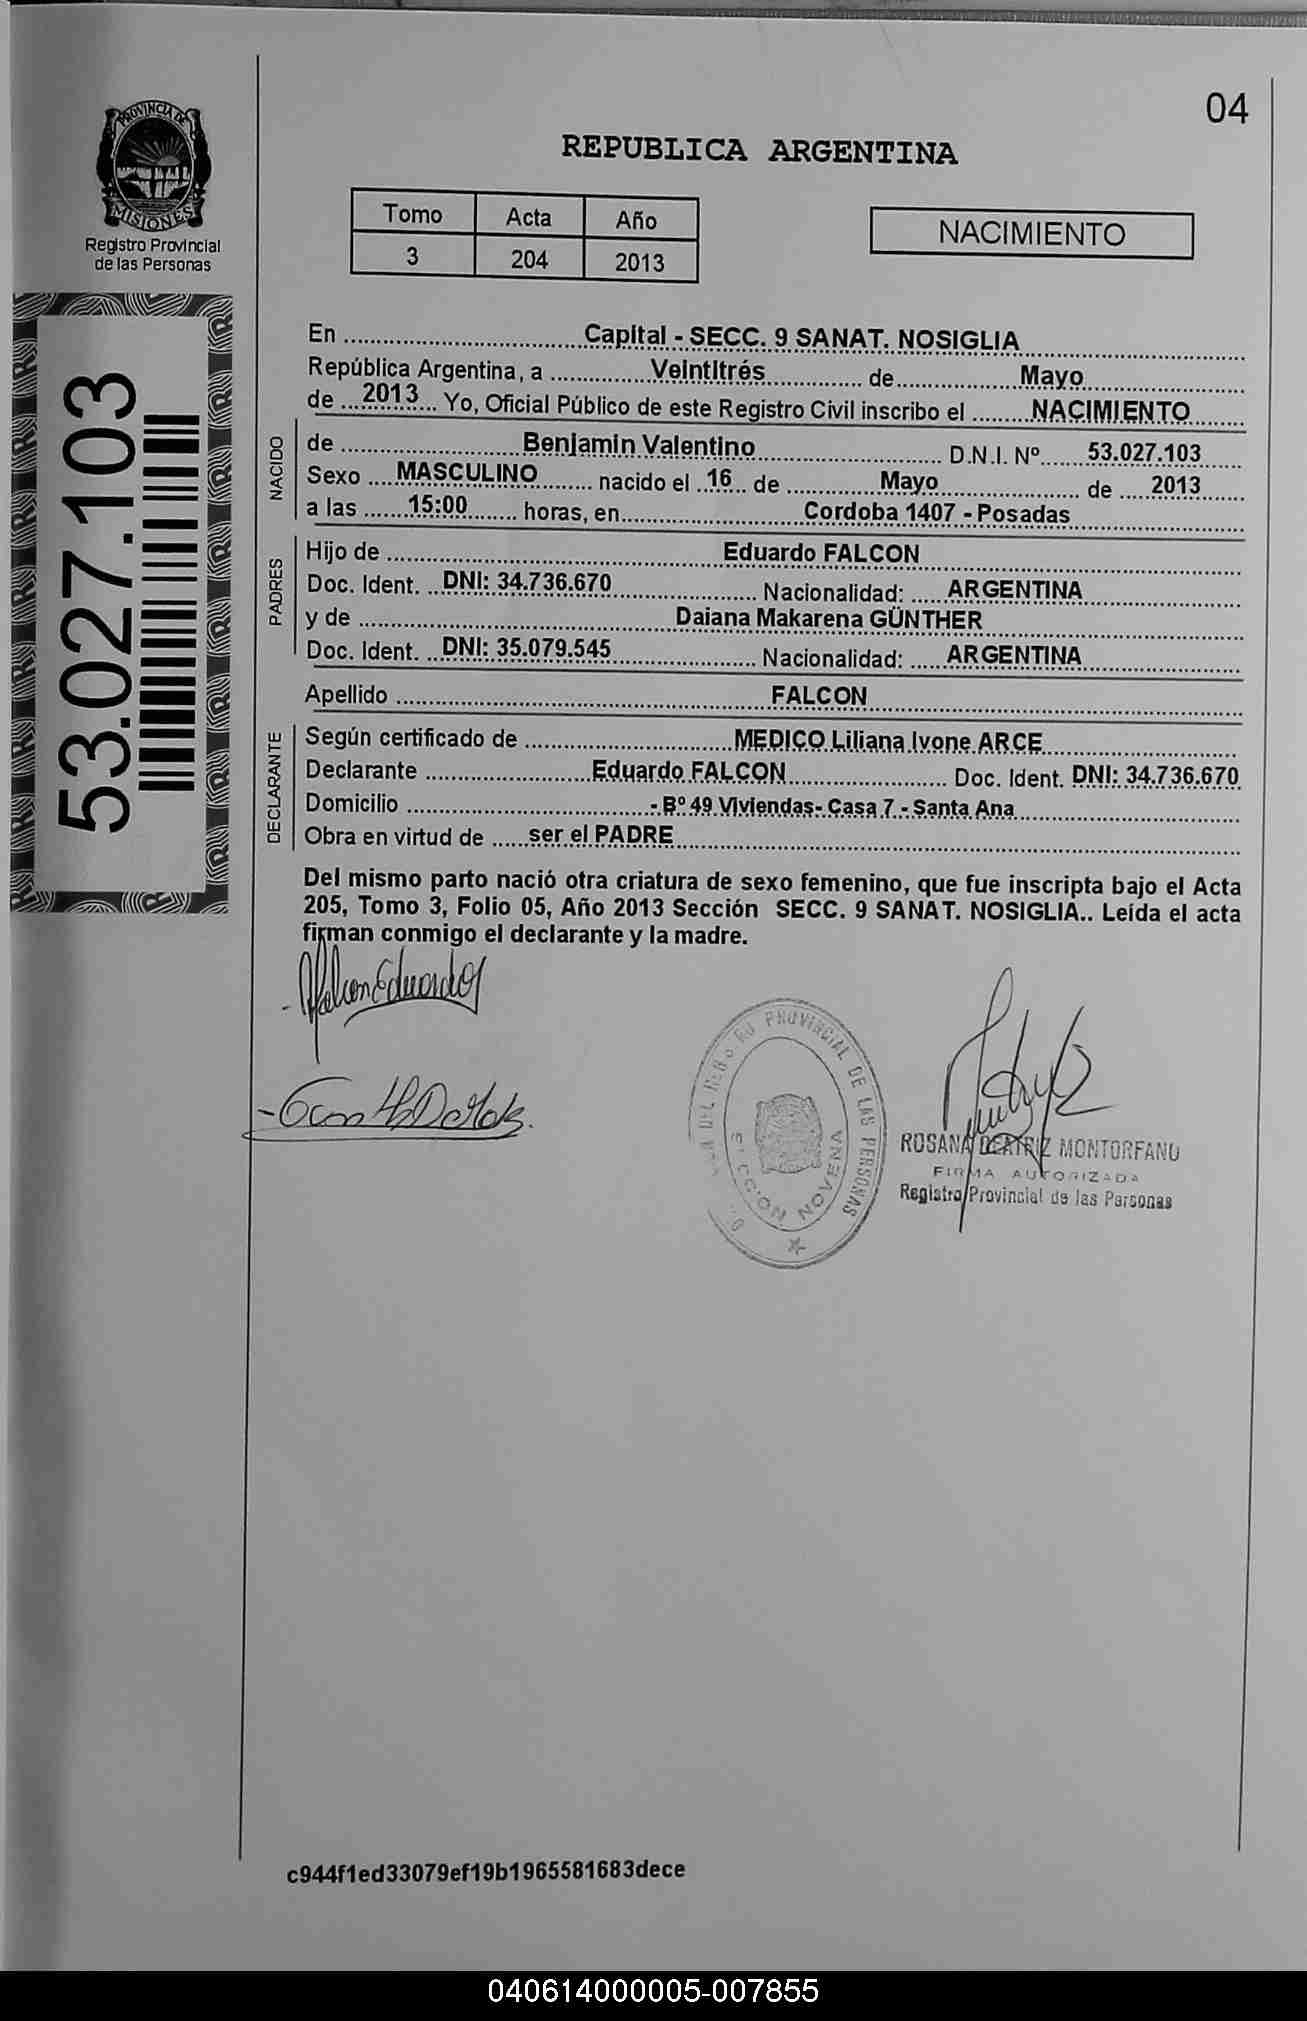 04
PROVINCIA DE
MISIONES
Registro Provincial
de las Personas
REPUBLICA ARGENTINA
Tomo Acta Año
3 204 2013
NACIMIENTO
53.027.103
En Capital - SECC. 9 SANAT. NOSIGLIA
República Argentina, a Veintitrés de Mayo
de 2013 Yo, Oficial Público de este Registro Civil inscribo el NACIMIENTO
NACIDO
de Benjamin Valentino D.N.I. Nº 53.027.103
Sexo MASCULINO nacido el 16 de Mayo de 2013
a las 15:00 horas, en Cordoba 1407 - Posadas
PADRES
Hijo de Eduardo FALCON
Doc. Ident. DNI: 34.736.670 Nacionalidad: ARGENTINA
y de Daiana Makarena GÜNTHER
Doc. Ident. DNI: 35.079.545 Nacionalidad: ARGENTINA
Apellido FALCON
DECLARANTE
Según certificado de MEDICO Liliana Ivone ARCE
Declarante Eduardo FALCON Doc. Ident. DNI: 34.736.670
Domicilio - Bº 49 Viviendas- Casa 7 - Santa Ana
Obra en virtud de ser el PADRE
Del mismo parto nació otra criatura de sexo femenino, que fue inscripta bajo el Acta
205, Tomo 3, Folio 05, Año 2013 Sección SECC. 9 SANAT. NOSIGLIA.. Leída el acta
firman conmigo el declarante y la madre.
Falcon Eduardo
PROVINCIAL DE LAS PERSONAS
NOVENA
ROSANA BEATRIZ MONTORFANO
FIRMA AUTORIZADA
Registro Provincial de las Personas
c944f1ed33079ef19b1965581683dece
040614000005-007855